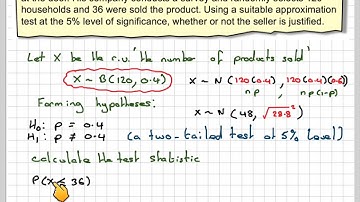 households and 36 were sold the product. Using a suitable approximation
test at the 5% level of significance, whether or not the seller is justified.
Let X be the r.v. 'the number of products sold'
X ~ B(120, 0.4)
X ~ N(120(0.4), 120(0.4)(0.6))
np np(1-p)
Forming hypotheses:
X ~ N(48, √28.8²)
H₀: p = 0.4
H₁: p ≠ 0.4 (a two-tailed test at 5% level)
calculate the test statistic
P(X ≤ 36)